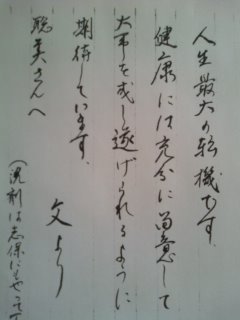 人生最大の転機です。
健康には充分に留意して
大事を成し遂げられるように
期待しています。
聡美さんへ
文より
(洗剤は志保にもやって下